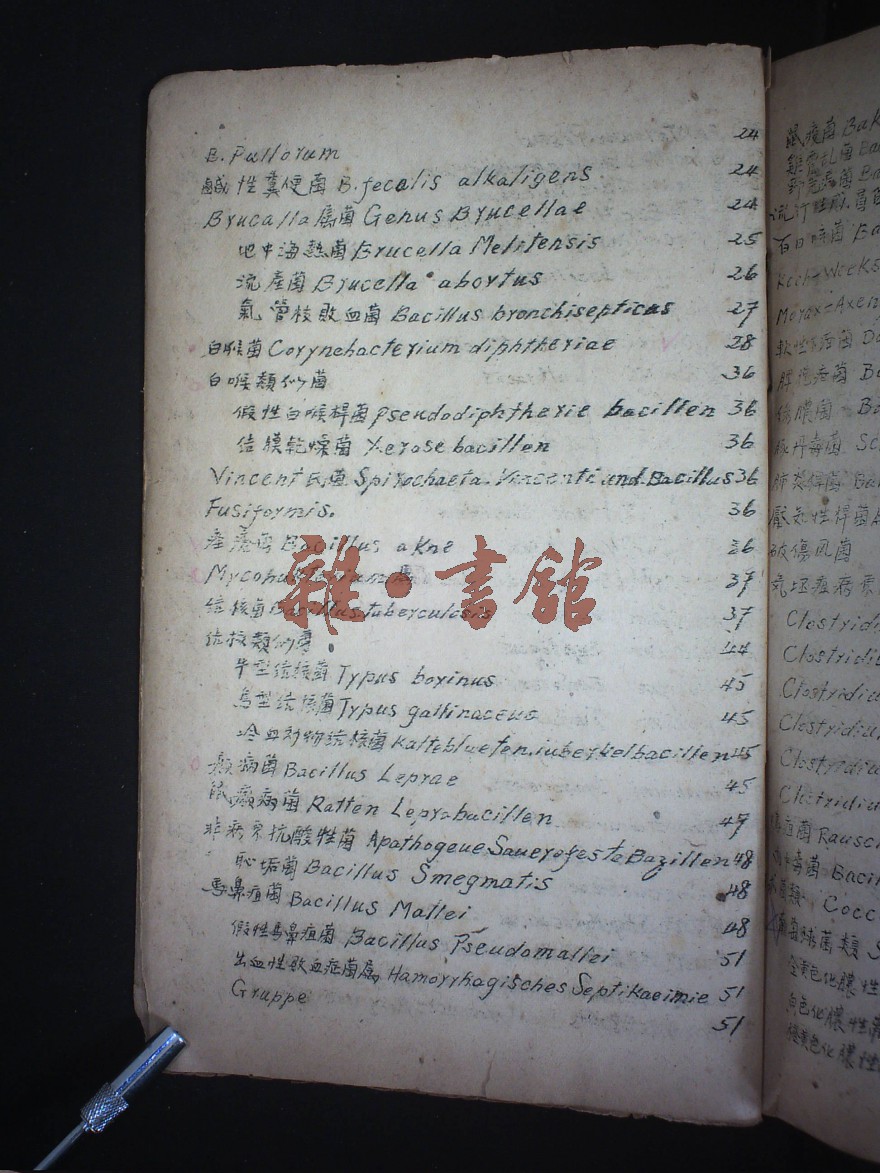 B. Pullorum 24
鹹性糞便菌 B. fecalis alkaligens 24
Brucalla属菌 Genus Brucellae 24
地中海熱菌 Brucella Melitensis 25
流産菌 Brucella abortus 26
氣管枝敗血菌 Bacillus bronchisepticus 27
白喉菌 Corynebacterium diphtheriae 28
白喉類似菌 36
假性白喉桿菌 pseudodiphtherie bacillen 36
结膜乾燥菌 Xerose bacillen 36
Vincent氏菌 Spirochaeta. Vincenti und. Bacillus 36
Fusiformis. 36
Bacillus akne 36
37
结核菌 Bacillus tuberculosis 37
结核類似菌 44
牛型结核菌 Typus bovinus 45
鳥型结核菌 Typus gallinaceus 45
冷血动物结核菌 Kalteblueten. tuberkelbacillen 45
癩病菌 Bacillus Leprae 45
鼠癩病菌 Ratten Leprabacillen 47
非病原抗酸性菌 Apathogeue Sauerofeste Bazillen 48
恥垢菌 Bacillus Smegmatis 48
馬鼻疽菌 Bacillus Mallei 48
假性馬鼻疽菌 Bacillus Pseudomallei 51
出血性敗血症菌属 Hamorrhagisches Septikaeimie 51
Gruppe 51
雜·書館
鼠疫菌
百日咳菌
Koch-Weeks
Morax=Axen
破傷风菌
Clostridiu
Clostridiu
Clostridiu
Clostridiu
Clostridiu
Rausc
Cocc